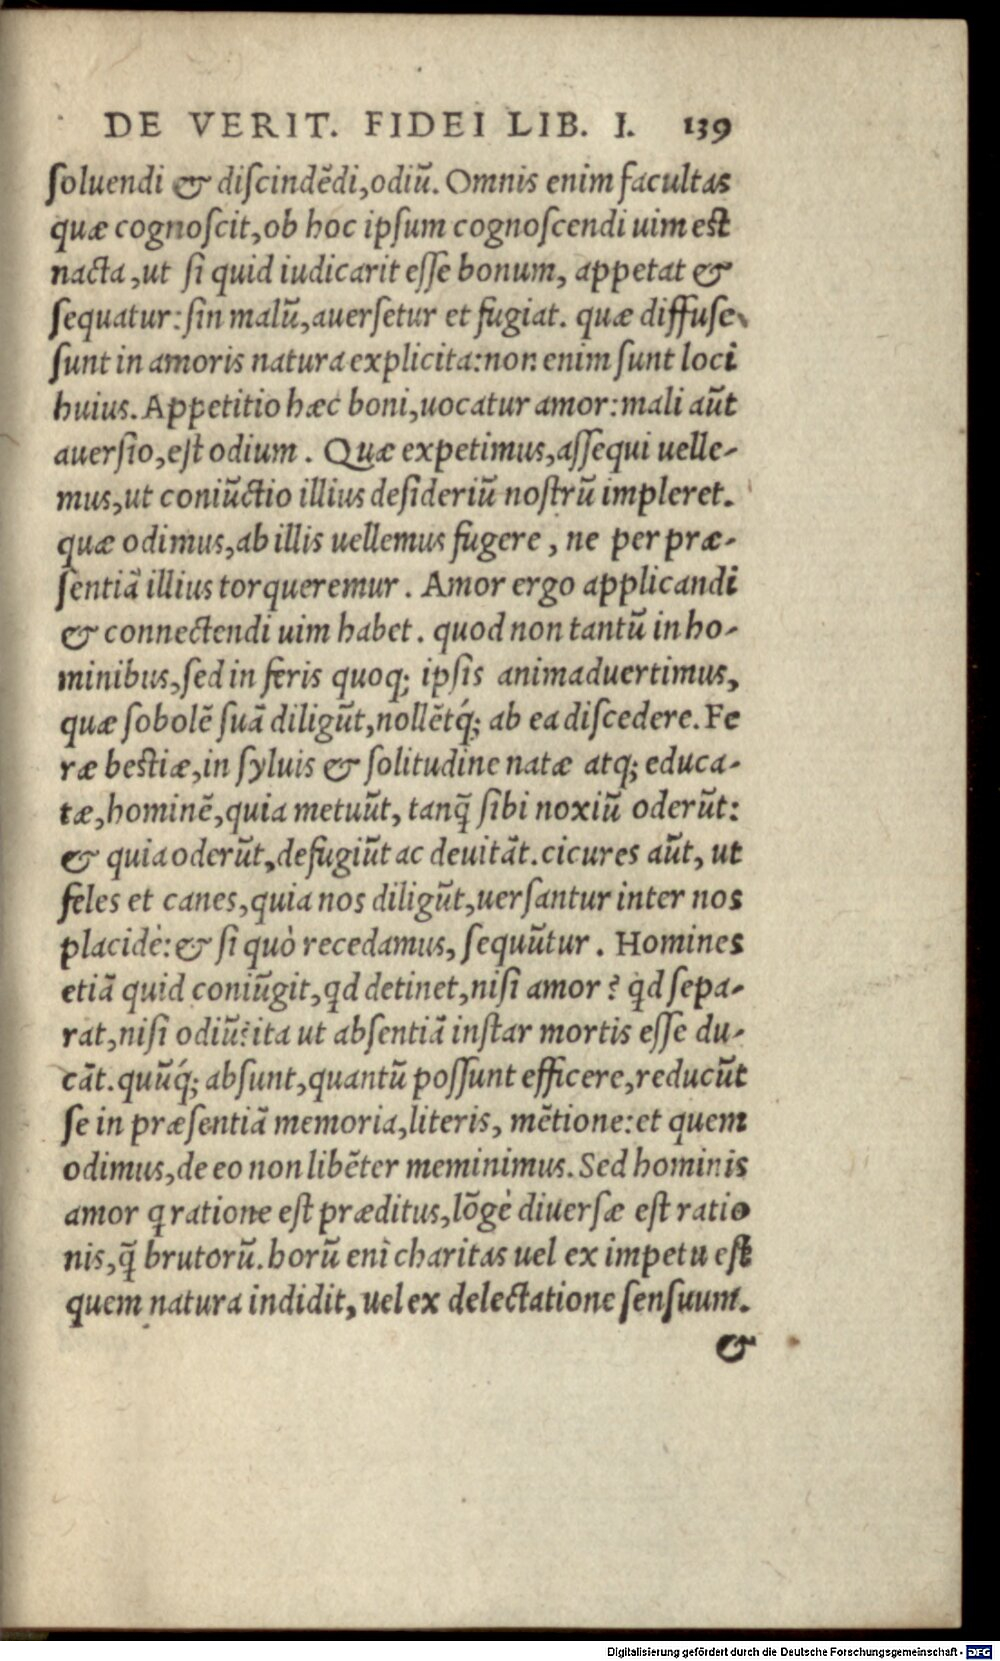 DE VERIT. FIDEI LIB. I. 139
ſoluendi & diſcindēdi, odiū. Omnis enim facultas
quæ cognoſcit, ob hoc ipſum cognoſcendi uim est
nacta, ut ſi quid iudicarit eſſe bonum, appetat &
ſequatur: ſin malū, auerſetur et fugiat. quæ diffuſe
ſunt in amoris natura explicita: non enim ſunt loci
huius. Appetitio hæc boni, uocatur amor: mali aūt
auerſio, eſt odium. Quæ expetimus, aſſequi uelle-
mus, ut coniūctio illius deſideriū noſtrū impleret.
quæ odimus, ab illis uellemus fugere, ne per præ-
ſentiā illius torqueremur. Amor ergo applicandi
& connectendi uim habet. quod non tantū in ho-
minibus, ſed in feris quoq; ipſis animaduertimus,
quæ ſobolē ſuā diligūt, nollētq́; ab ea diſcedere. Fe
ræ bestiæ, in ſyluis & ſolitudine natæ atq; educa-
tæ, hominē, quia metuūt, tanq̄ ſibi noxiū oderūt:
& quia oderūt, defugiūt ac deuitāt. cicures aūt, ut
feles et canes, quia nos diligūt, uerſantur inter nos
placidè: & ſi quò recedamus, ſequūtur. Homines
etiā quid coniūgit, qd detinet, niſi amor? qd ſepa-
rat, niſi odiū? ita ut abſentiā inſtar mortis eſſe du-
cāt. quūq́; abſunt, quantū poſſunt efficere, reducūt
ſe in præſentiā memoria, literis, mētione: et quem
odimus, de eo non libēter meminimus. Sed hominis
amor q ratione eſt præditus, lōgè diuerſæ eſt ratio
nis, q̄ brutorū. horū enī charitas uel ex impetu eſt
quem natura indidit, uel ex delectatione ſenſuum.
&
Digitalisierung gefördert durch die Deutsche Forschungsgemeinschaft - DFG